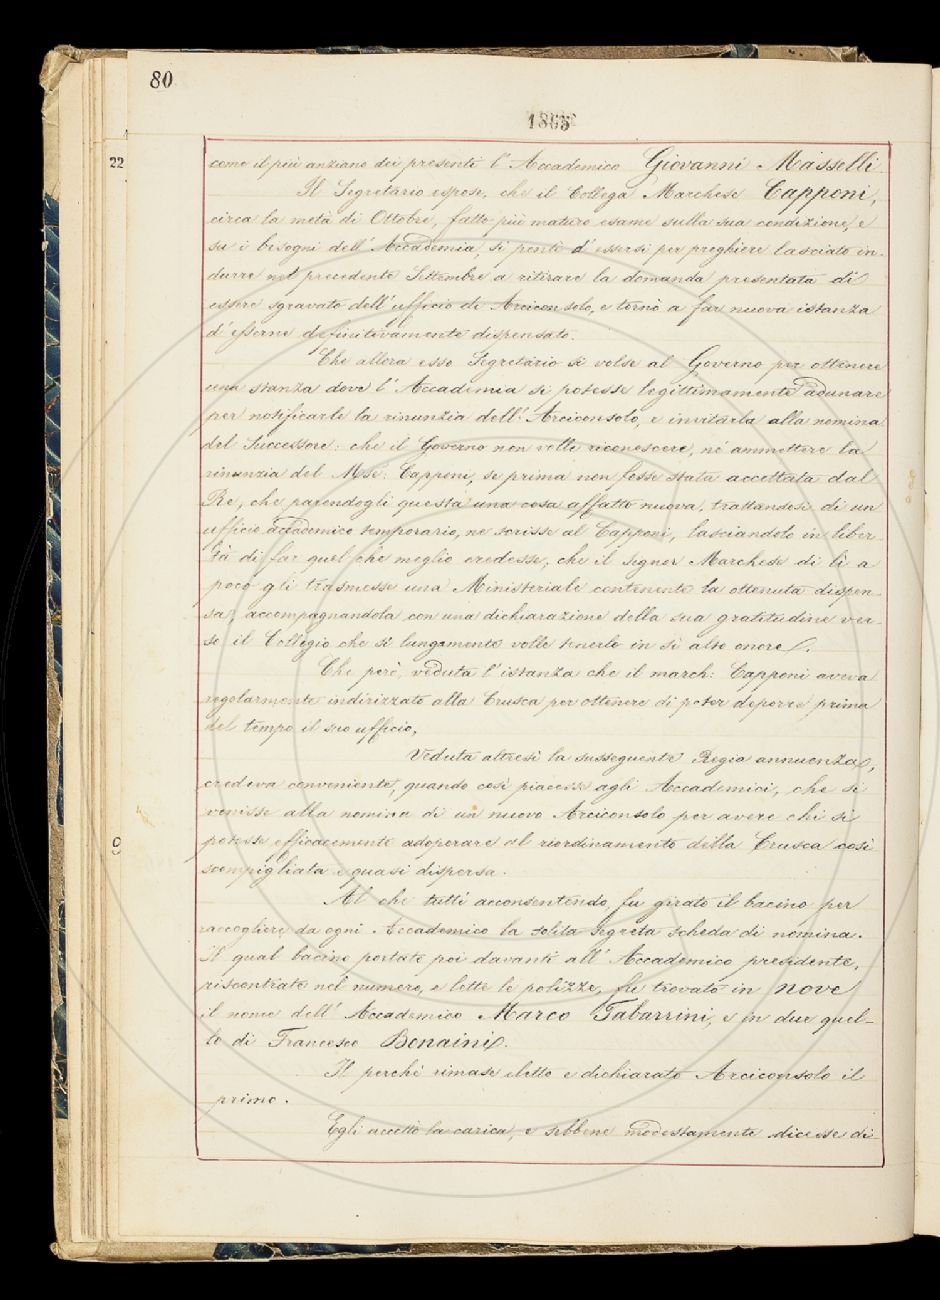 80
1865
22
come il più anziano dei presenti l'Accademico Giovanni Masselli.
Il Segretario espose, che il Collega Marchese Capponi,
circa la metà di Ottobre, fatto più maturo esame sulla sua condizione, e
su i bisogni dell'Accademia, si pentì d'essersi per preghiere lasciato in-
durre nel precedente Settembre a ritirare la domanda presentata di
essere sgravato dell'ufficio di Arciconsolo, e tornò a far nuova istanza
d'esserne definitivamente dispensato.
Che allora esso Segretario si volse al Governo per ottenere
una stanza dove l'Accademia si potesse legittimamente adunare
per notificarle la rinunzia dell'Arciconsolo, e invitarla alla nomina
del Successore: che il Governo non volle riconoscere, nè ammettere la
rinunzia del Mse: Capponi, se prima non fosse stata accettata dal
Re, che parendogli questa una cosa affatto nuova, trattandosi di un
ufficio accademico temporario, ne scrisse al Capponi, lasciandolo in liber-
tà di far quel che meglio credesse, che il Signor Marchese di lì a
poco gli trasmesse una Ministeriale contenente la ottenuta dispen-
sa, accompagnandola con una dichiarazione della sua gratitudine ver-
so il Collegio che sì lungamente volle tenerlo in sì alto onore.
Che però, veduta l'istanza che il march: Capponi aveva
regolarmente indirizzato alla Crusca per ottenere di poter deporre prima
del tempo il suo ufficio,
Veduta altresì la susseguente Regia annuenza,
credeva conveniente, quando così piacesse agli Accademici, che si
venisse alla nomina di un nuovo Arciconsolo per avere chi si
potesse efficacemente adoperare al riordinamento della Crusca così
scompigliata e quasi dispersa.
Al che tutti acconsentendo, fu girato il bacino per
raccogliere da ogni Accademico la solita segreta scheda di nomina.
Il qual bacino portato poi davanti all'Accademico presidente,
riscontrate nel numero, e lette le polizze, fu trovato in nove
il nome dell'Accademico Marco Tabarrini, e in due quel-
lo di Francesco Bonaini.
Il perchè rimase eletto e dichiarato Arciconsolo il
primo.
Egli accettò la carica, e sebbene modestamente dicesse di-